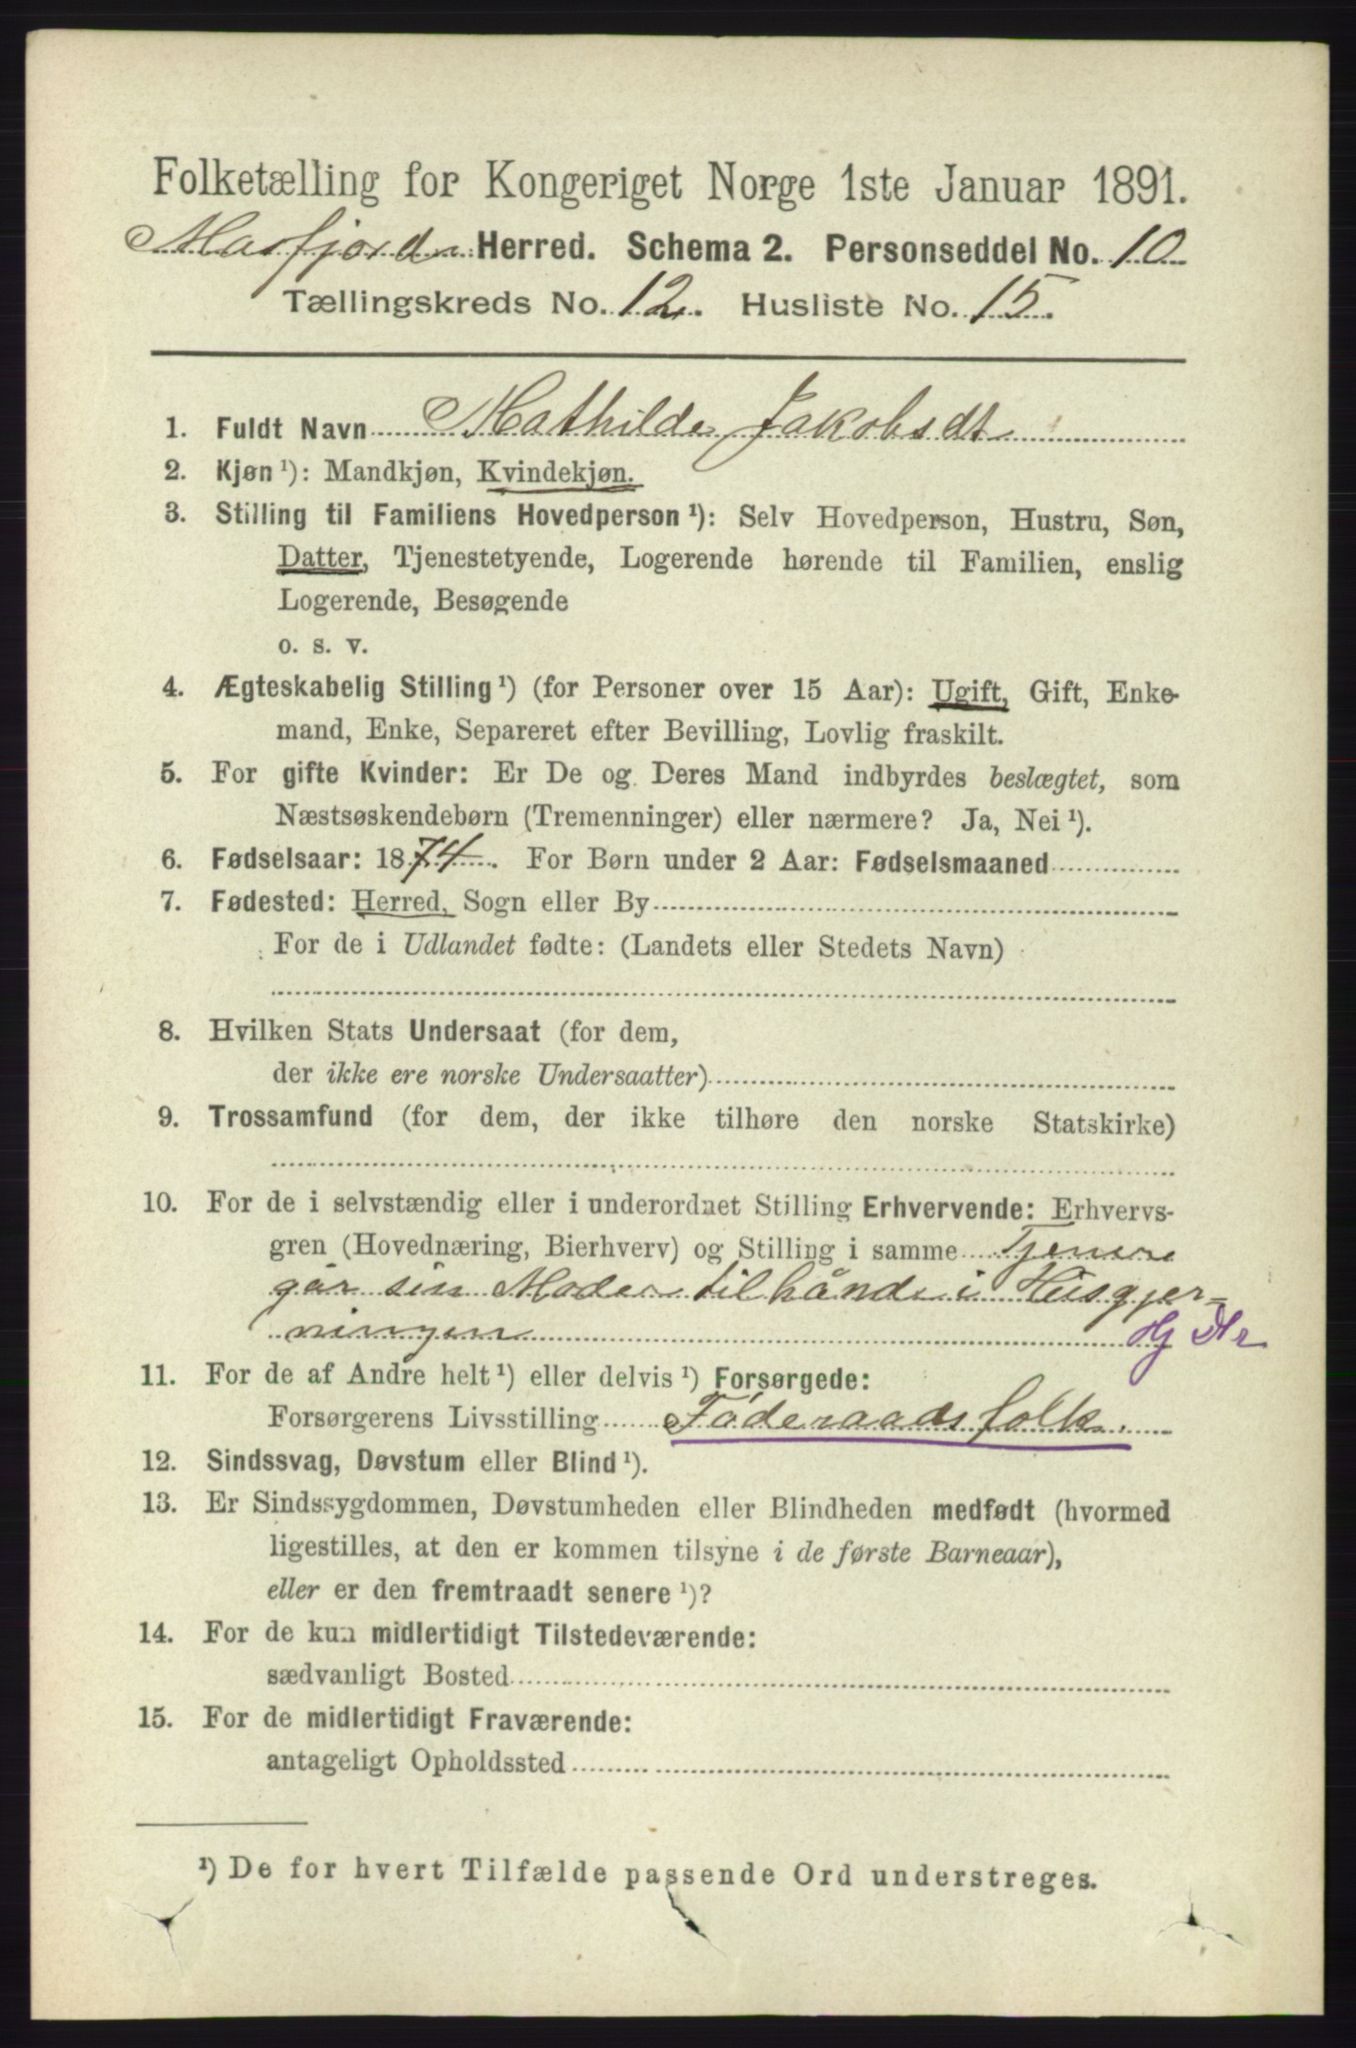 Folketælling for Kongeriget Norge 1ste Januar 1891.
Masfjorden Herred. Schema 2. Personseddel No. 10
Tællingskreds No. 12. Husliste No. 15.
1. Fuldt Navn Mathilde Jakobsdt
2. Kjøn ¹): Mandkjøn, Kvindekjøn.
3. Stilling til Familiens Hovedperson ¹): Selv Hovedperson, Hustru, Søn,
Datter, Tjenestetyende, Logerende hørende til Familien, enslig
Logerende, Besøgende
o. s. v.
4. Ægteskabelig Stilling ¹) (for Personer over 15 Aar): Ugift, Gift, Enke-
mand, Enke, Separeret efter Bevilling, Lovlig fraskilt.
5. For gifte Kvinder: Er De og Deres Mand indbyrdes beslægtet, som
Næstsøskendebørn (Tremenninger) eller nærmere? Ja, Nei ¹).
6. Fødselsaar: 1874. For Børn under 2 Aar: Fødselsmaaned
7. Fødested: Herred, Sogn eller By
For de i Udlandet fødte: (Landets eller Stedets Navn)
8. Hvilken Stats Undersaat (for dem,
der ikke ere norske Undersaatter)
9. Trossamfund (for dem, der ikke tilhøre den norske Statskirke)
10. For de i selvstændig eller i underordnet Stilling Erhvervende: Erhvervs-
gren (Hovednæring, Bierhverv) og Stilling i samme Tjener
går sin Moder tilhånde i Husgjer-
ningen Hj
11. For de af Andre helt ¹) eller delvis ¹) Forsørgede:
Forsørgerens Livsstilling Föderaadsfolk.
12. Sindssvag, Døvstum eller Blind ¹).
13. Er Sindssygdommen, Døvstumheden eller Blindheden medfødt (hvormed
ligestilles, at den er kommen tilsyne i de første Barneaar),
eller er den fremtraadt senere ¹)?
14. For de kun midlertidigt Tilstedeværende:
sædvanligt Bosted
15. For de midlertidigt Fraværende:
antageligt Opholdssted
¹) De for hvert Tilfælde passende Ord understreges.